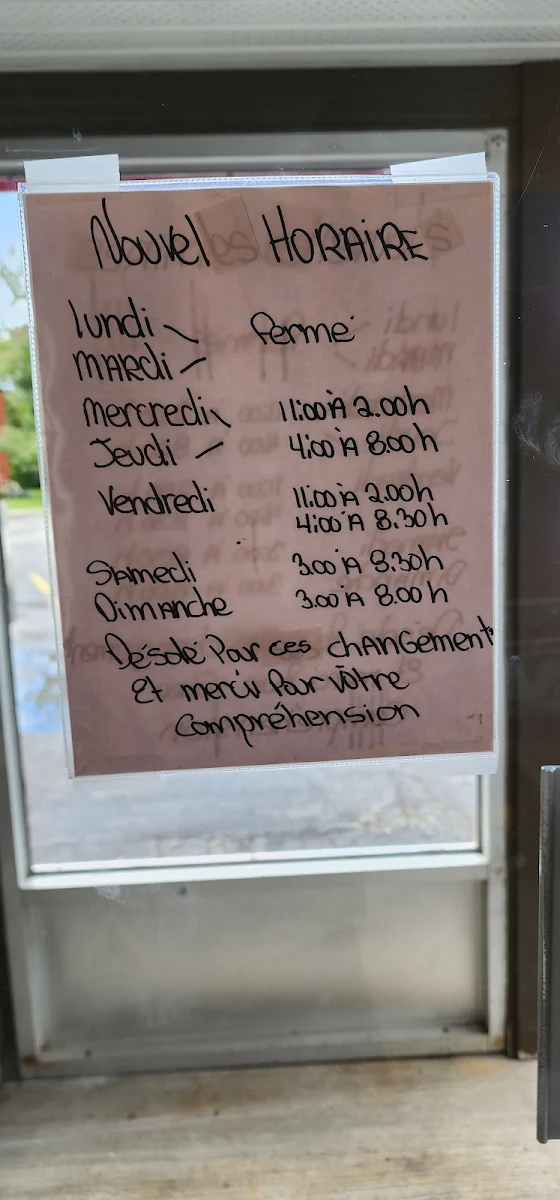 Nouvel HORAIRE
lundi
fermé
MARdi
Mercredi 11:00 À 2.00h
Jeudi 4:00 À 8:00h
Vendredi 11:00 À 2.00h
4:00 À 8.30h
SAmedi 3:00 À 8:30h
DiMANche 3:00 À 8:00h
Désolé Pour ces chANGements
Et merci Pour vôtre
Compréhension